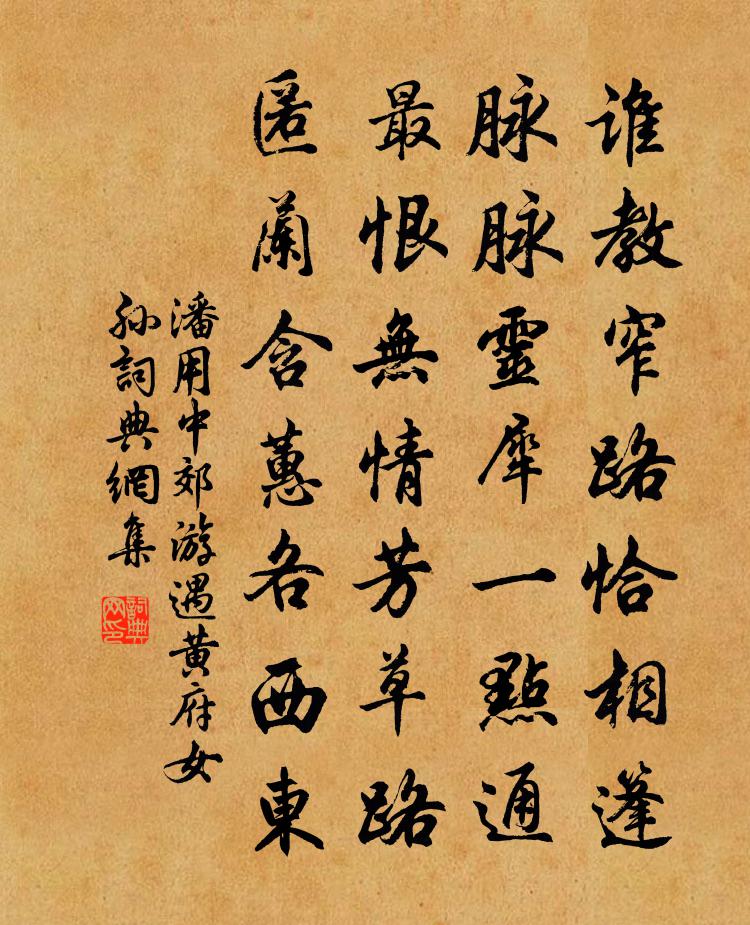 谁教窄路恰相篷
脉脉靈犀一點通
最恨無情芳草路
匿蘭含蕙各西東
潘用中郊游遇黄府女
孙詞典網集
詞典
网印